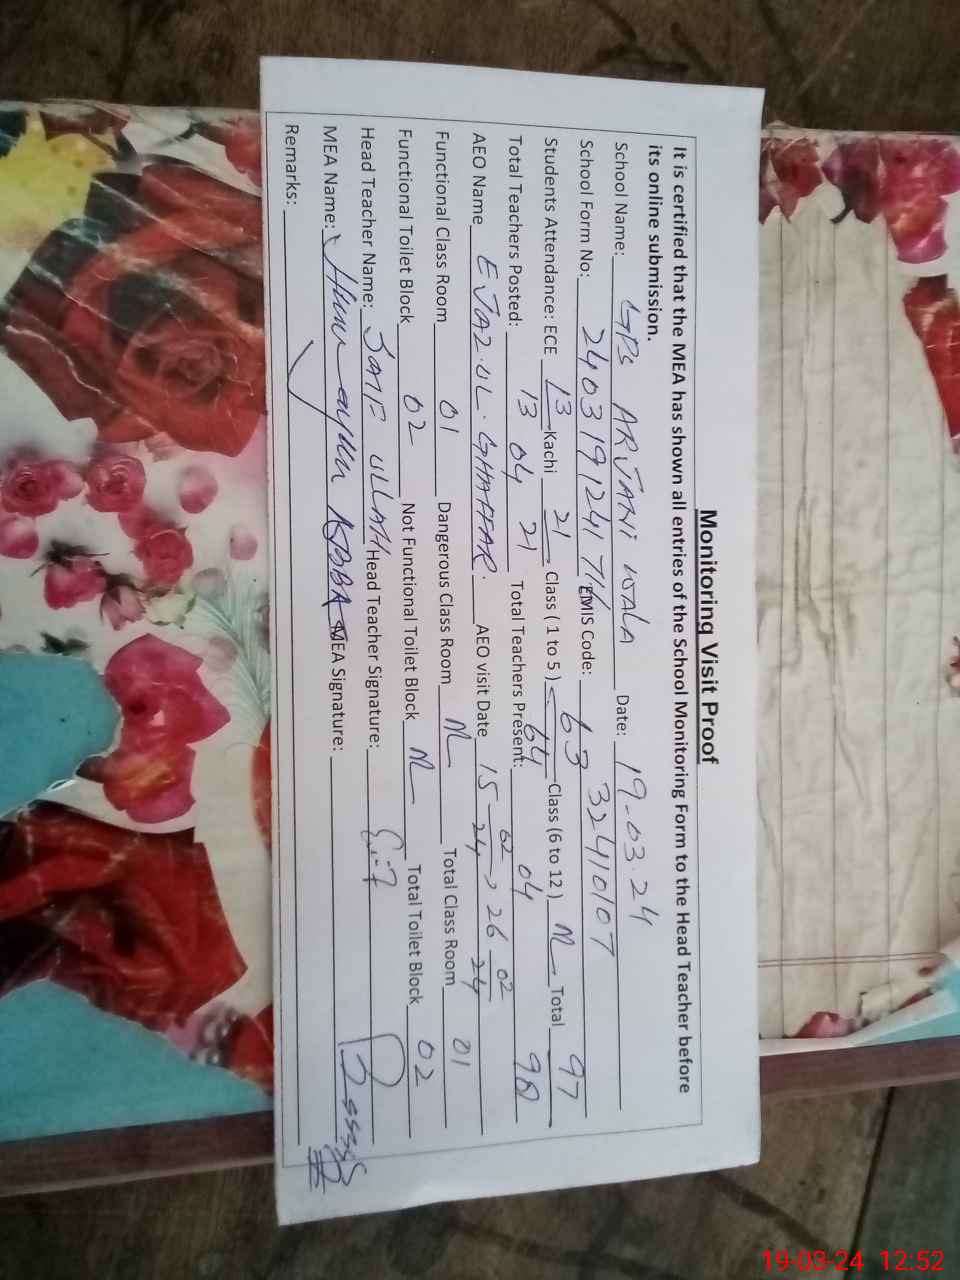 Monitoring Visit Proof
It is certified that the MEA has shown all entries of the School Monitoring Form to the Head Teacher before
its online submission.
School Name: GPS ARJANI WALA Date: 19-03-24
School Form No: EMIS Code: 32410107
Students Attendance: ECE 13/13 Kachi 21/21 Class ( 1 to 5 ) 63/64 Class (6 to 12) Total 97/98
Total Teachers Posted: 04 Total Teachers Present: 04
AEO Name EJAZ-UL-GHAFFAR. AEO visit Date 15-02-24 > 26-02-24
Functional Class Room 01 Dangerous Class Room Total Class Room 01
Functional Toilet Block 02 Not Functional Toilet Block Total Toilet Block 02
Head Teacher Name: SAIF ULLAH Head Teacher Signature:
MEA Name: Humayun ABBAS MEA Signature:
Remarks:
19-03-24 12:52